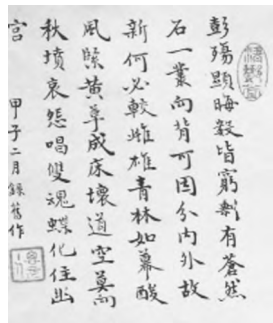 彭殤顯晦穀皆窮剩有蒼然
石一叢向背可因分内外故
新何必較雌雄青林如幕酸
風緊黃草成床壞道空莫向
秋墳哀怨唱雙魂蝶化住幽
宮　甲子二月錄舊作